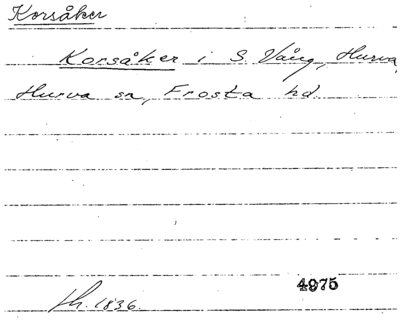 Korsåker
Korsåker i S. Vång, Hurva,
Hurva sn, Frosta hd.
4975
1836.